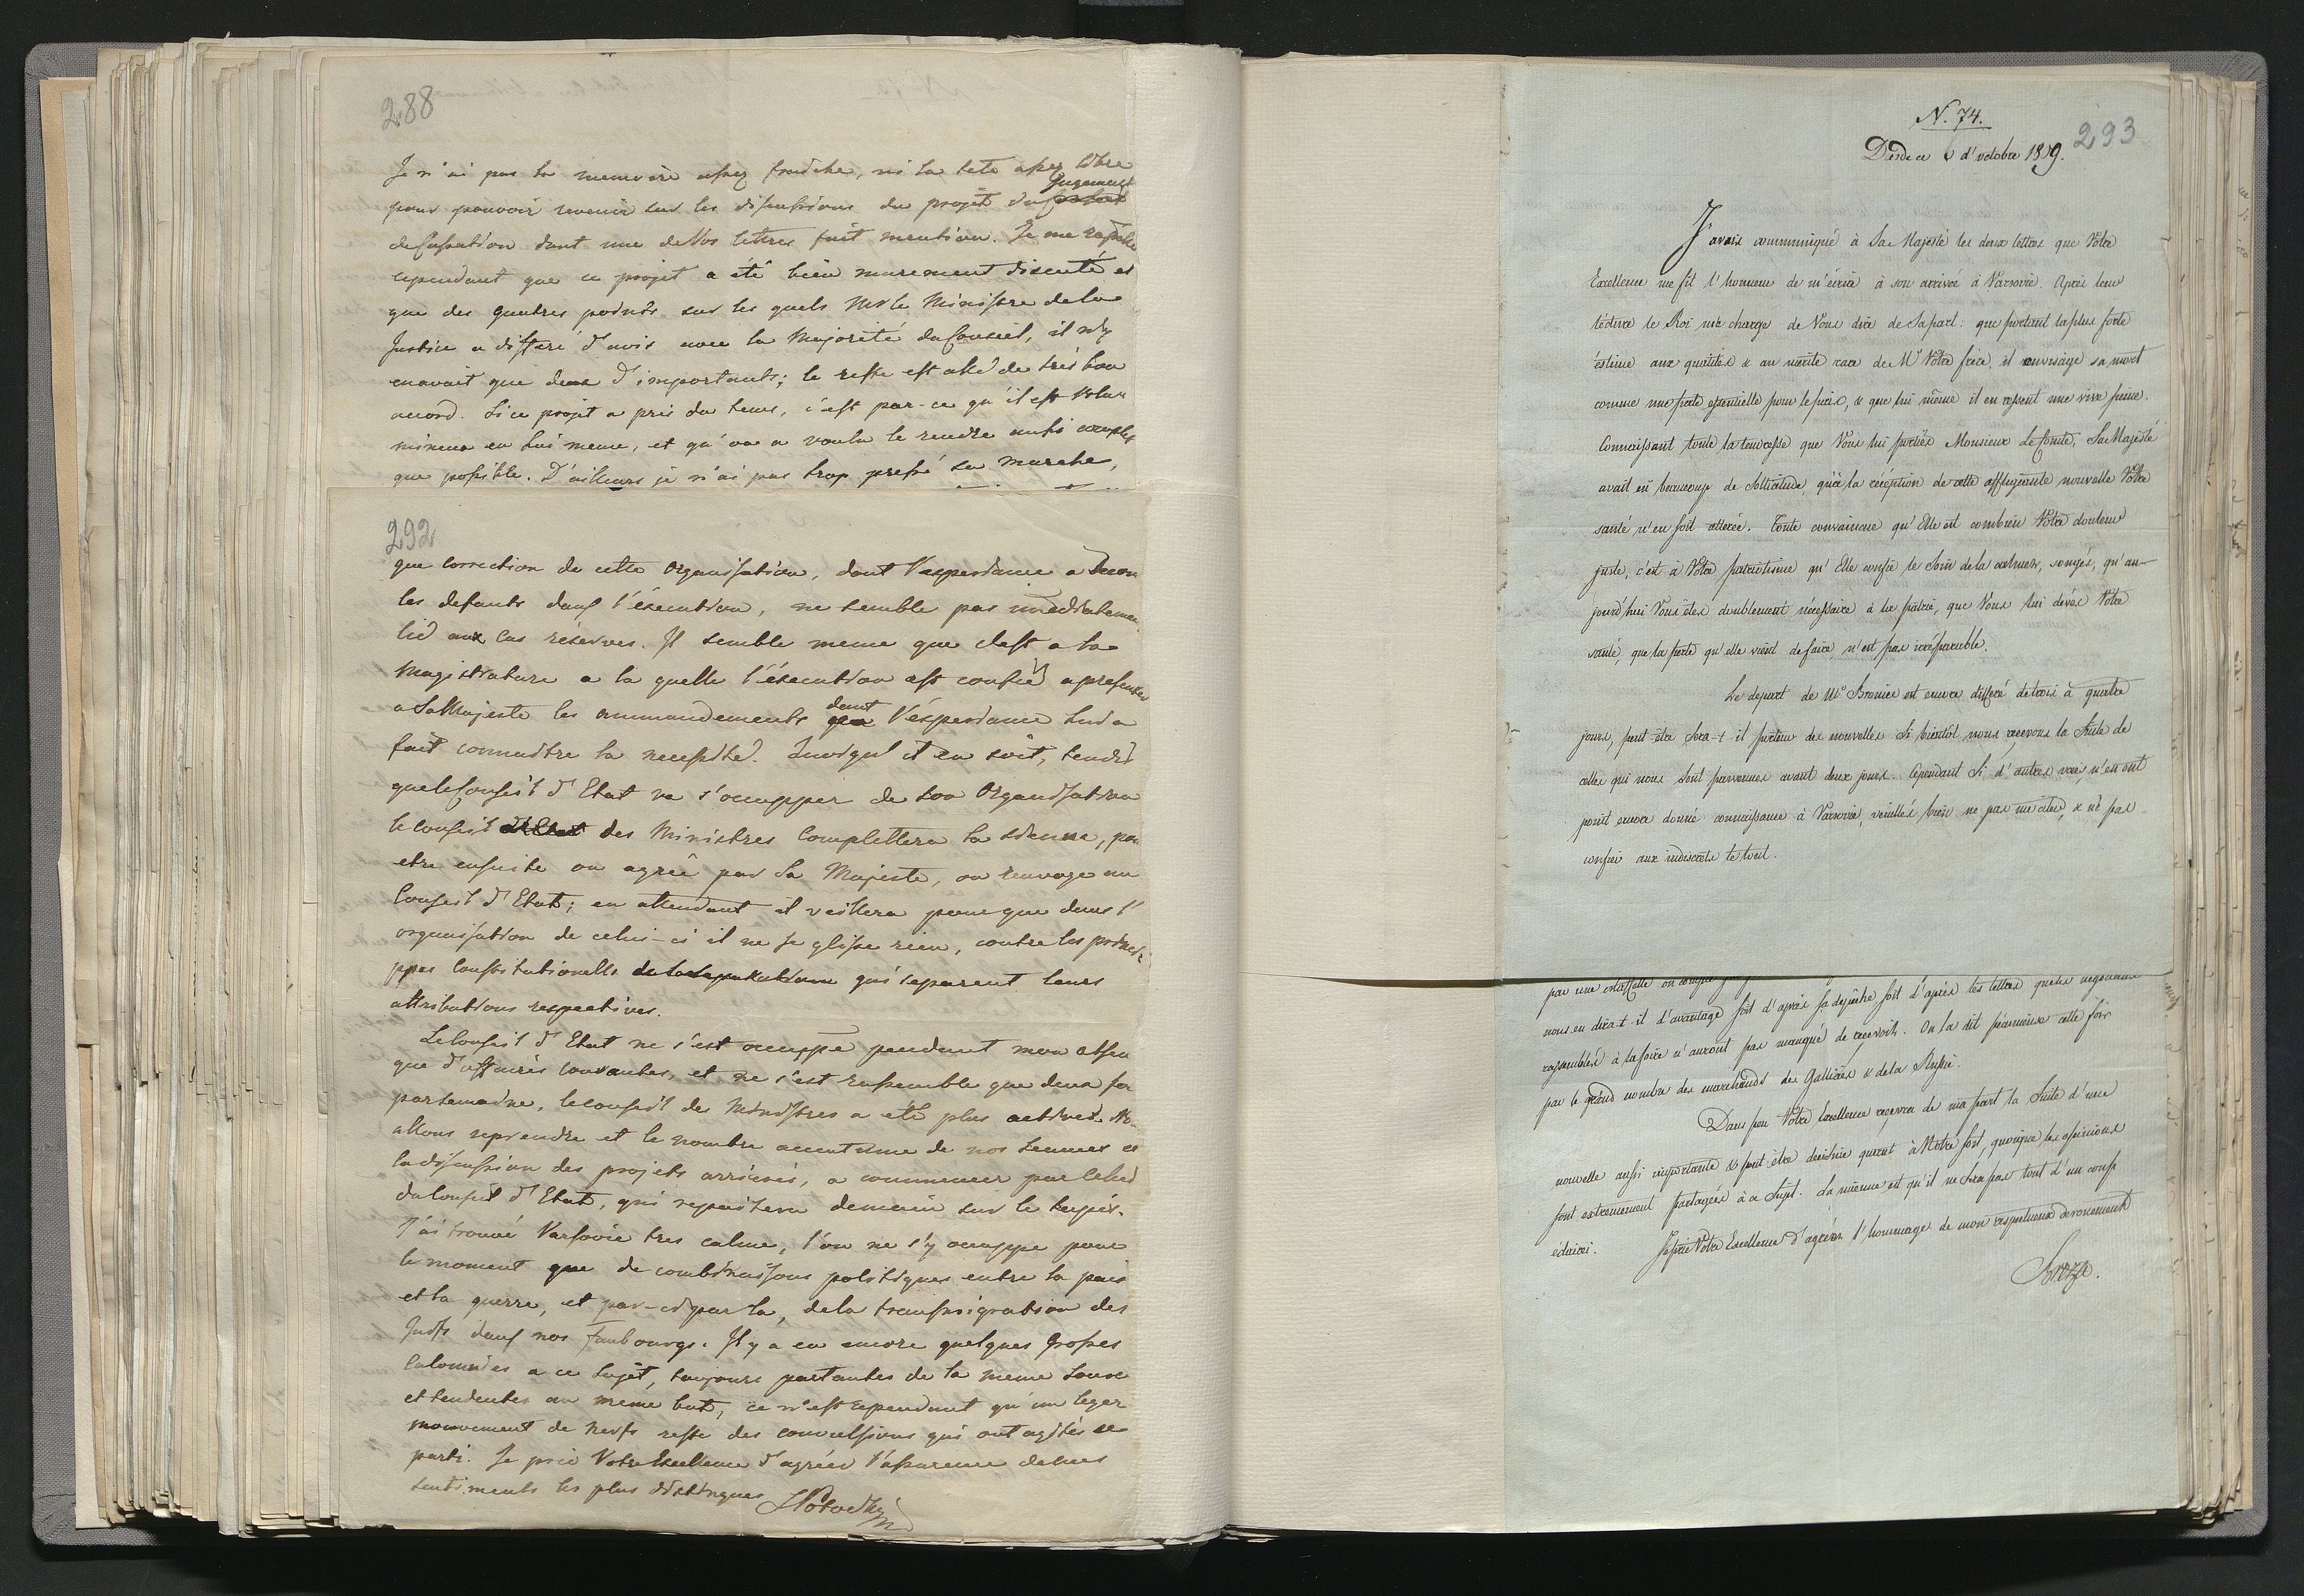 288
Je n'ai pas la memoire assez fraiche, ni la tete assez libre
pour pouvoir revenir sur les discussions du projet du Jugement
de Cassation dont une de Vos lettres fait mention. Je me rapelle
cependant que ce projet a été bien murement discuté et
que des quatres points sur les quels Mr le Ministre de la
Justice a differé d'avis avec la Majorité du Conseil, il n'y
en avait que deux d'importants; le reste est allé de très bon
accord. Si ce projet a pris du tems, c'est par-ce qu'il est Volu-
mineux en lui meme, et qu'on a voulu le rendre aussi complet
que possible. D'ailleurs je n'ai pas trop pressé sa marche,
292
que correction de cette Organisation, dont l'experience a
les defauts dans l'éxecution, ne semble pas
lié aux cas réservés. Il semble meme que c'est a la
Magistrature a la quelle l'éxecution est confiée a presenter
a Sa Majesté les ammandements dont l'éxperience lui a
fait connaitre la necessité. Quoiqu'il en soit, tandis
que le Conseil d'Etat va s'occupper de son Organisation
le Conseil des Ministres complettera la sienne, pour
etre ensuite ou agréé par Sa Majesté, ou renvoyé au
Conseil d'Etat; en attendant il veillera pour que dans l'
organisation de celui-ci il ne se glisse rien, contre les princi-
ppes Constitutionelles qui separent leurs
attributions respectives.
Le Conseil d'Etat ne s'est occuppé pendant mon absen
que d'affaires courantes, et ne s'est rassemblé que deux fois
par semaine, le conseil de Ministres a été plus
allons reprendre et le nombre accoutumé de nos seances et
la discussion des projets arrierés, a commencer par celui
du Conseil d'Etat, qui reparaitera demain sur le tapis.
J'ai trouvé Varsovie tres calme, l'on ne s'y occuppe pour
le moment que de combinaisons politiques entre la paix
et la guerre, et par-ci par la, de la transmigration des
Juifs dans nos Faubourgs. Il y a eu encore quelques grosses
Calomnies a ce sujet, toujours partantes de la meme source
et tendentes au meme but, ce n'est cependant qu'un leger
mouvement de nerfs reste des convulsions qui ont agités ce
parti. Je prie Votre Excellence d'agréer l'assurance de mes
sentiments les plus distingués
N. 74.
293
Dresde ce 6 d'octobre 1809.
J'avais communiqué à Sa Majesté les deux lettres que Votre
Excellence me fit l'honneur de m'écrire à son arrivée à Varsovie. Après leur
lecture le Roi me charge de Vous dire de Sa part: que portant la plus forte
éstime aux qualités & au mérite rare de Mr Votre frère, il envisage sa mort
comme une perte essentielle pour le païs, & que lui même il en ressent une vive peine.
Connaissant toute la tendresse que Vous lui portiés Monsieur Le Comte, Sa Majesté
avait eu beaucoup de Sollicitude, qu'à la réception de cette affligeante nouvelle Votre
santé n'en soit alterée. Toute convaincue qu'Elle est combien Votre douleur
juste, c'est à Votre patriotisme qu'Elle confie le soin de la calmer, songés, qu'au-
jourd'hui Vous êtes doublement nécessaire à la patrie, que Vous lui devés Votre
santé, que la perte qu'elle vient de faire n'est pas irréparable.
Le depart de Mr Bronier est encore différé de trois à quatre
jours, peut-être sera-t-il porteur des nouvelles si bientôt nous recevons la Suite de
celles qui nous sont parvenues avant deux jours. Cependant si d'autres voies n'en ont
point encore donné connaissance à Varsovie, veuillés bien ne pas me citer, & ne pas
confier aux indiscrets le tout.
par une estaffette
nous en dira-t-il d'avantage soit d'après sa depêche soit d'après les lettres que les négocians
rassemblés à la foire n'auront pas manqué de recevoir. On la dit fameuse cette fois
par le grand nombre des marchands de Gallicie & de la Russie.
Dans peu Votre Excellence recevra de ma part la Suite d'une
nouvelle aussi importante & peut-être decisive quant à Notre sort, quoique les opinions
sont extremement partagées à ce sujet. La mienne est qu'il ne sera pas tout d'un coup
éclairci. Je prie Votre Excellence d'agréer l'hommage de mon respectueux devouement
Breza.